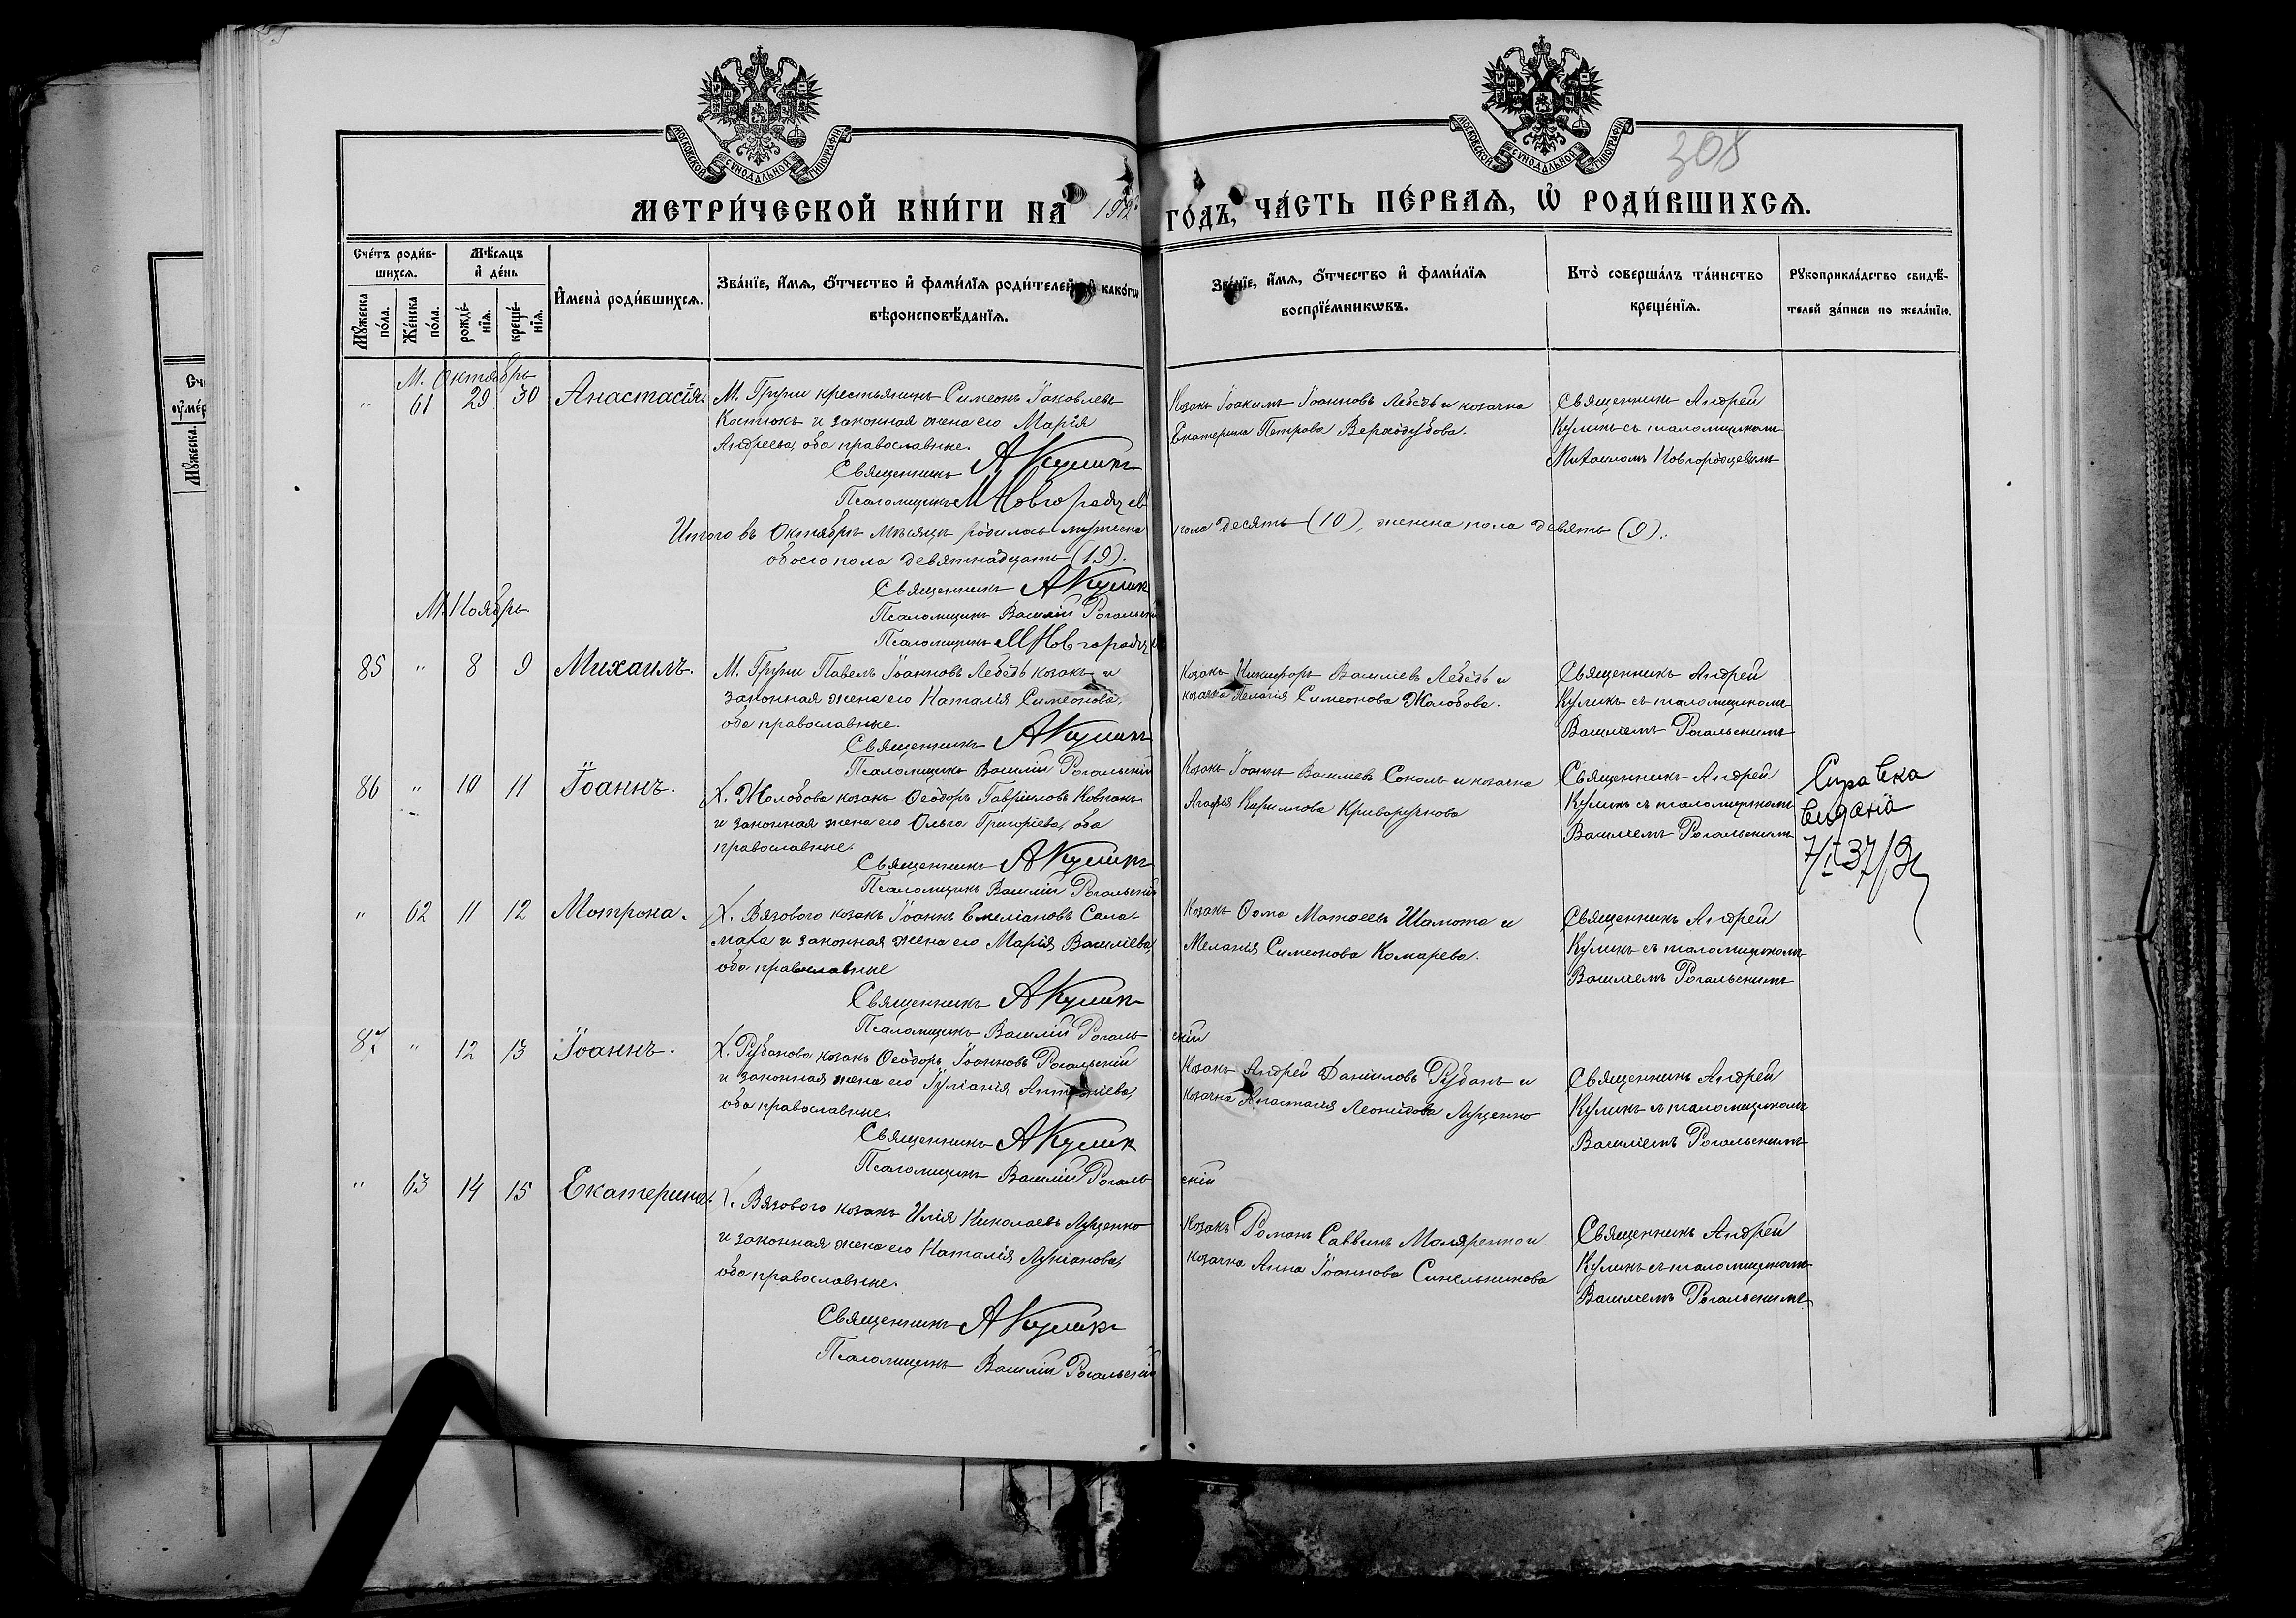 308
МОСКОВСКОЙ СѴНОДАЛЬНОЙ ТИПОГРАФІИ
МОСКОВСКОЙ СѴНОДАЛЬНОЙ ТИПОГРАФІИ
МЕТРИ́ЧЕСКОЙ КНИ́ГИ НА 1912 ГО́ДЪ, ЧА́СТЬ ПЕ́РВАЯ, Ѡ РОДИ́ВШИХСЯ.
Сче́тъ роди́в-
шихся.
Мѣ́сяцъ
и де́нь
Му́жеска
по́ла.
Же́нска
по́ла.
рожде́-
нія.
креще́-
нія.
Имена̀ роди́вшихся.
Зва́ніе, и́мя, о́тчество и фами́лія роди́телей, и како́гѡ
вѣроисповѣ́данія.
Зва́ніе, и́мя, о́тчество и фами́лія
воспріе́мникѡвъ.
Кто̀ соверша́лъ та́инство
креще́нія.
Рукоприкла́дство свидѣ́-
телей за́писи по жела́нію.
М. Октябрь
" 61 29 30 Анастасія.
М. Груни крестьянинъ Симеонъ Іаковлевъ
Костюкъ и законная жена его Марія
Андреева, оба православные.
Священникъ АКуликъ
Псаломщикъ МНовгородцев
Козакъ Іоакимъ Іоанновъ Лебедь и козачка
Екатерина Петрова Верходубова.
Священникъ Андрей
Куликъ съ псаломщикомъ
Михаиломъ Новгородцевымъ
Итого въ Октябрѣ мѣсяцѣ родилось мужеска пола десять (10), женска пола девять (9).
обоего пола девятнадцать (19).
Священникъ АКулик
Псаломщикъ Василій Рогальскій
Псаломщикъ МНовгородцев
М. Ноябрь.
85 " 8 9 Михаилъ.
М. Груни Павелъ Іоанновъ Лебедь козакъ и
законная жена его Наталія Симеонова,
оба православные.
Священникъ АКуликъ
Псаломщикъ Василій Рогальскій
Козакъ Никифоръ Василіевъ Лебедь и
козачка Пелагія Симеонова Жолобова.
Священникъ Андрей
Куликъ съ псаломщикомъ
Василіемъ Рогальскимъ
86 " 10 11 Іоаннъ.
Х. Жолобова козакъ Ѳеодоръ Гавриловъ Ковпакъ
и законная жена его Ольга Григоріева, оба
православные.
Священникъ АКуликъ
Псаломщикъ Василій Рогальскій
Козакъ Іоаннъ Василіевъ Соколъ и козачка
Агафія Кириллова Криворучкова
Священникъ Андрей
Куликъ съ псаломщикомъ
Василіемъ Рогальскимъ
Справка
видана
7/I 37
" 62 11 12 Мотрона.
Х. Вязового козакъ Іоаннъ Емеліановъ Сала-
маха и законная жена его Марія Василіева,
оба православные
Священникъ АКуликъ
Псаломщикъ Василій Рогаль-
скій
Козакъ Ѳома Матѳеевъ Шамота и
Меланія Симеонова Комарева.
Священникъ Андрей
Куликъ съ псаломщикомъ
Василіемъ Рогальскимъ
87 " 12 13 Іоаннъ.
Х. Рубанова козакъ Ѳеодоръ Іоанновъ Рогальскій
и законная жена его Іуліанія Антоніева,
оба православные.
Священникъ АКулик
Псаломщикъ Василій Рогаль-
скій
Козакъ Андрей Даніиловъ Рубанъ и
козачка Анастасія Леонидова Луценко
Священникъ Андрей
Куликъ съ псаломщикомъ
Василіемъ Рогальскимъ
" 63 14 15 Екатерина.
Х. Вязового козакъ Илія Николаевъ Луценко
и законная жена его Наталія Лукіанова,
оба православные.
Священникъ АКуликъ
Псаломщикъ Василій Рогальскій
Козакъ Романъ Саввинъ Моляренко и
козачка Анна Іоаннова Синельникова
Священникъ Андрей
Куликъ съ псаломщикомъ
Василіемъ Рогальскимъ